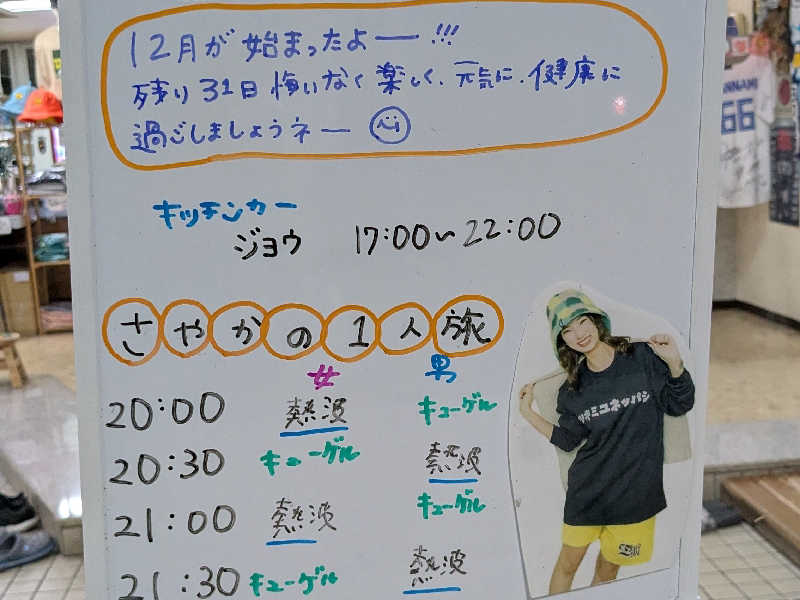 12月が始まったよー!!!
残り31日悔いなく楽しく、元気に、健康に
過ごしましょうネー
キッチンカー
ジョウ 17:00〜22:00
さやかの1人旅
女 男
20:00 熱波 キューゲル
20:30 キューゲル 熱波
21:00 熱波 キューゲル
21:30 キューゲル 熱波
ユネッパシ
NNAMI
66